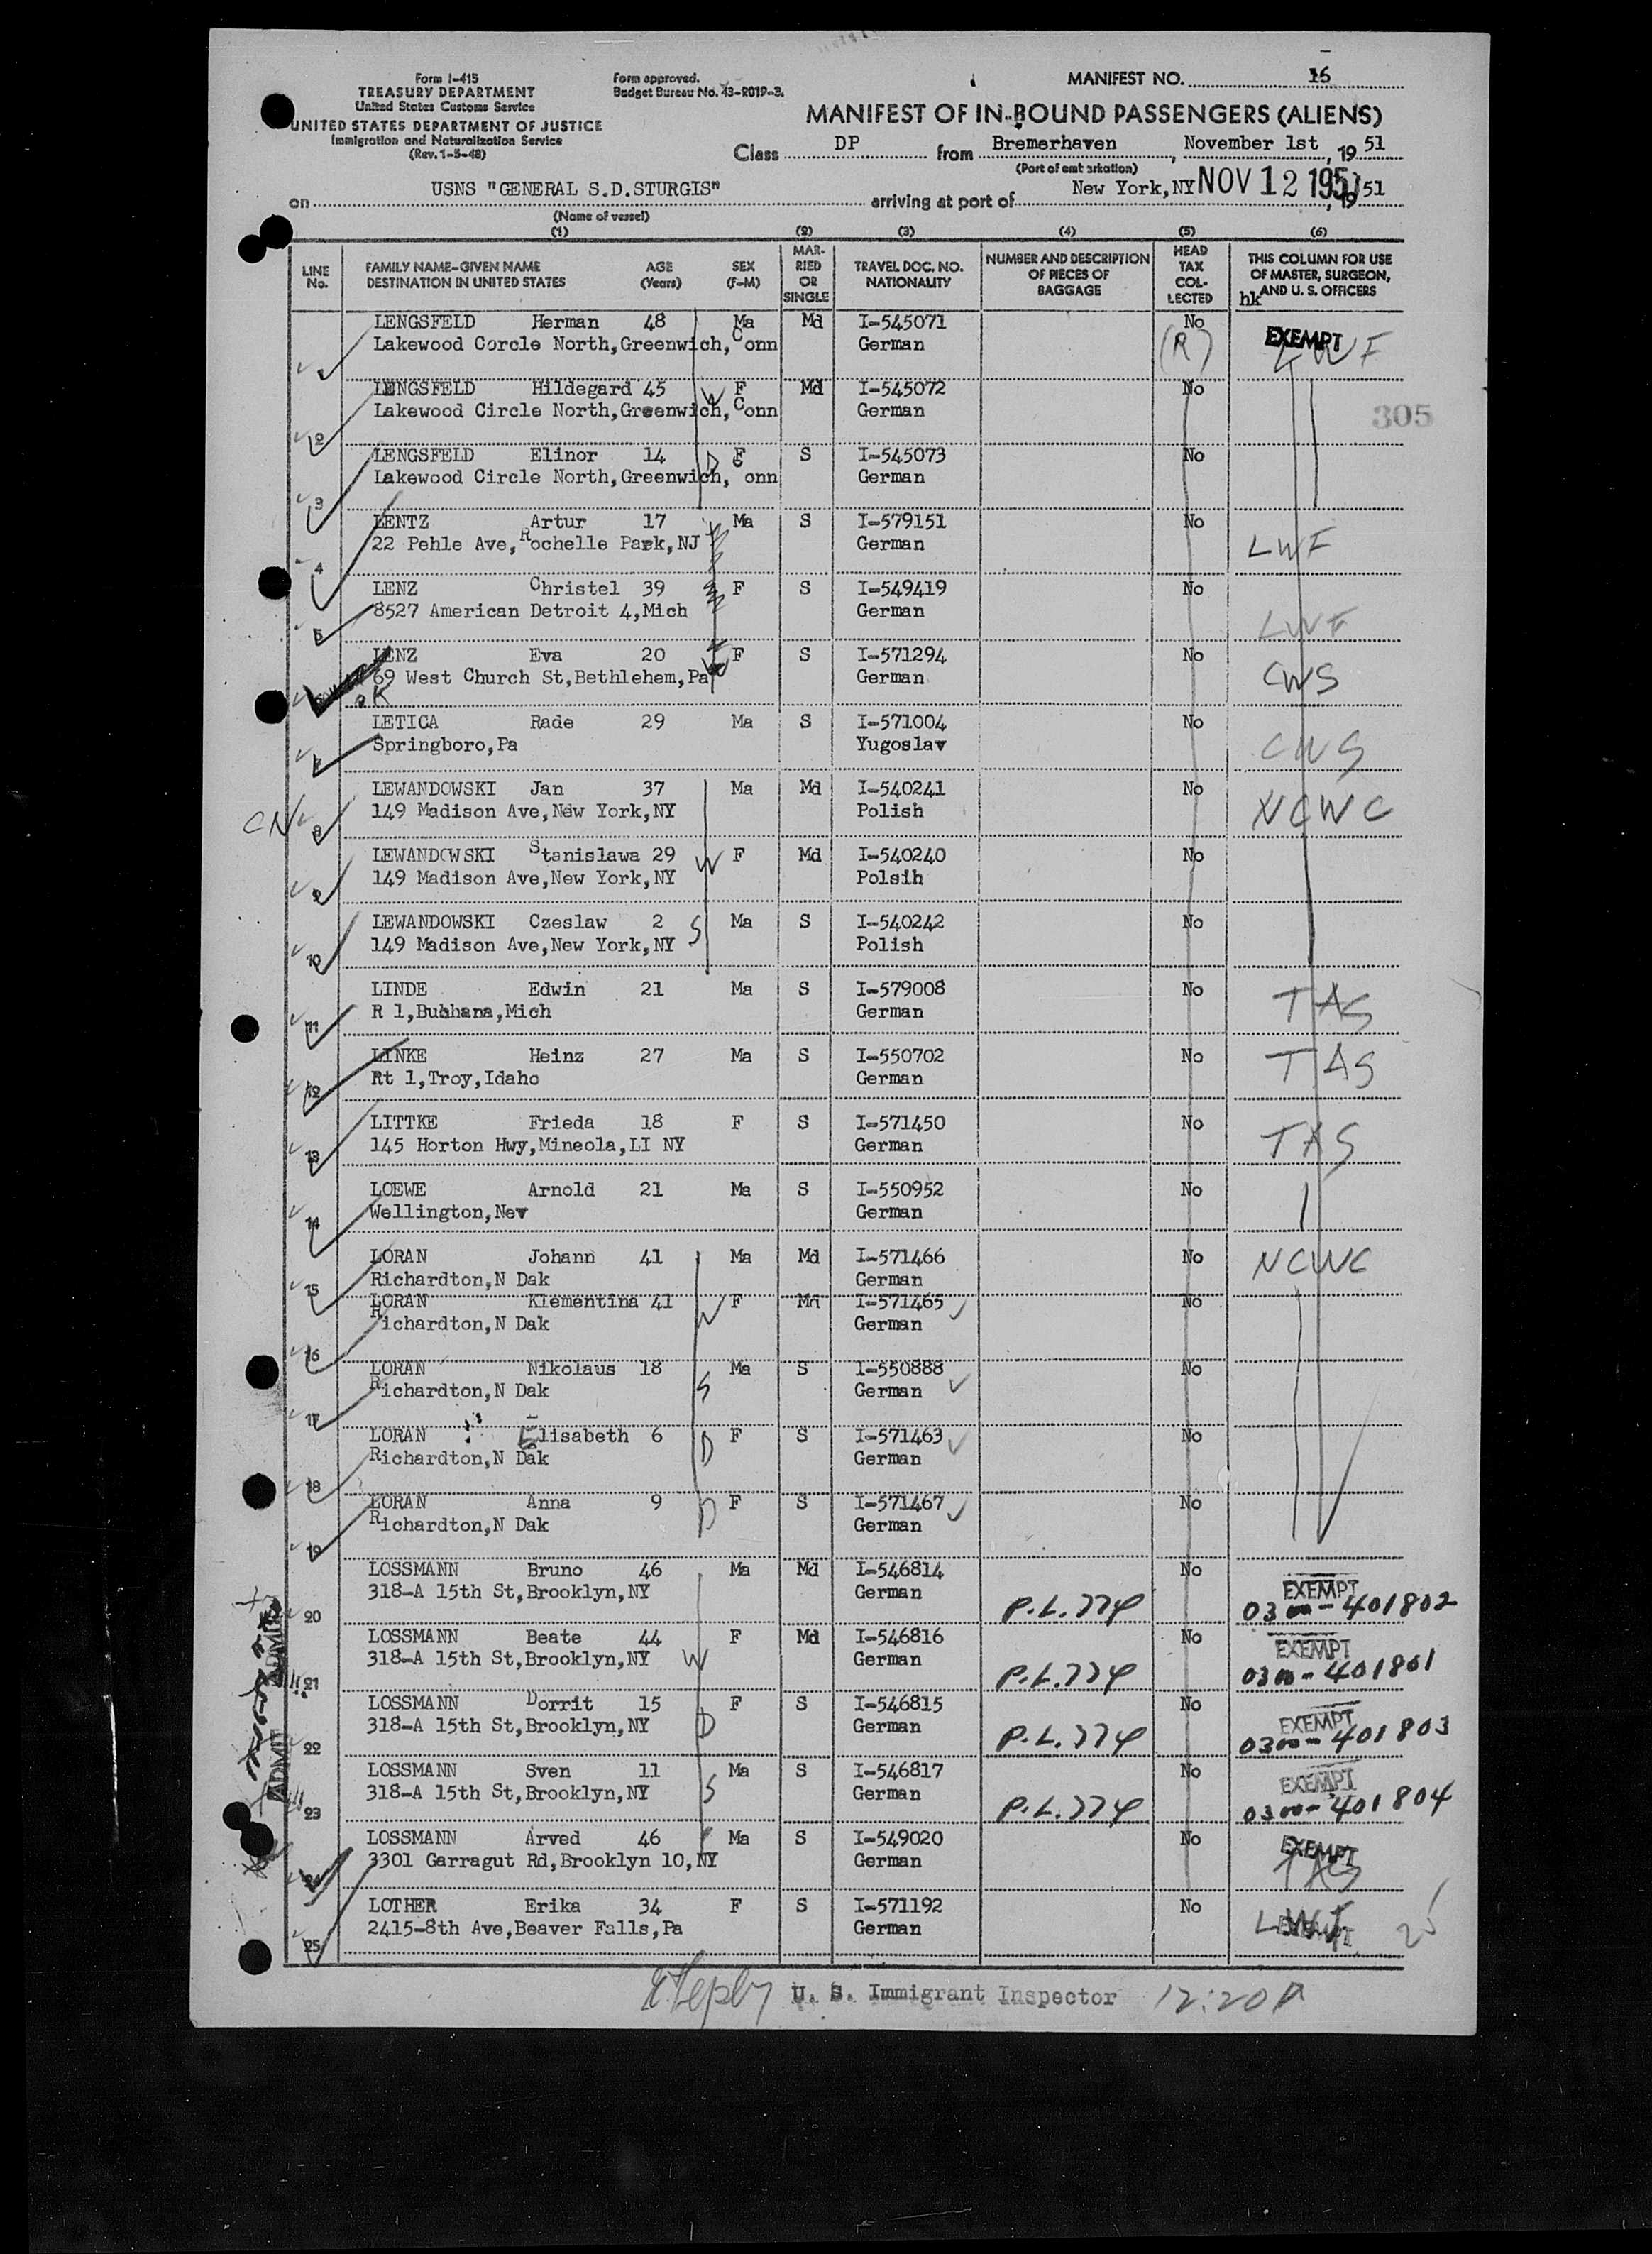 Form I-415
TREASURY DEPARTMENT
United States Customs Service
UNITED STATES DEPARTMENT OF JUSTICE
Immigration and Naturalization Service
(Rev. 1-5-48)
Form approved.
Budget Bureau No. 43-R019-3.
MANIFEST NO. 16
MANIFEST OF IN-BOUND PASSENGERS (ALIENS)
Class DP from Bremerhaven, November 1st, 19 51
(Port of embarkation)
on USNS "GENERAL S.D.STURGIS" arriving at port of New York, NY NOV 12 1951, 19 51
(Name of vessel)
(1) (2) (3) (4) (5) (6)
LINE No. FAMILY NAME-GIVEN NAME DESTINATION IN UNITED STATES AGE (Years) SEX (F-M) MARRIED OR SINGLE TRAVEL DOC. NO. NATIONALITY NUMBER AND DESCRIPTION OF PIECES OF BAGGAGE HEAD TAX COLLECTED THIS COLUMN FOR USE OF MASTER, SURGEON, AND U. S. OFFICERS
hk
LENGSFELD Herman 48 Ma Md I-545071 No EXEMPT
1 Lakewood Corcle North,Greenwich, Conn German (R) LWF
LENGSFELD Hildegard 45 W F Md I-545072 No
2 Lakewood Circle North,Greenwich, Conn German
305
LENGSFELD Elinor 14 D F S I-545073 No
3 Lakewood Circle North,Greenwich, Conn German
LENTZ Artur 17 Ma S I-579151 No
4 22 Pehle Ave,Rochelle Park,NJ German LWF
LENZ Christel 39 F S I-549419 No
5 8527 American Detroit 4,Mich German LWF
LENZ Eva 20 F S I-571294 No
69 West Church St,Bethlehem,Pa German CWS
OK
LETICA Rade 29 Ma S I-571004 No
7 Springboro,Pa Yugoslav CWS
LEWANDOWSKI Jan 37 Ma Md I-540241 No
CN 8 149 Madison Ave,New York,NY Polish NCWC
LEWANDOWSKI Stanislawa 29 W F Md I-540240 No
9 149 Madison Ave,New York,NY Polsih
LEWANDOWSKI Czeslaw 2 S Ma S I-540242 No
10 149 Madison Ave,New York,NY Polish
LINDE Edwin 21 Ma S I-579008 No TAS
11 R 1,Buhhana,Mich German
LINKE Heinz 27 Ma S I-550702 No TAS
12 Rt 1,Troy,Idaho German
LITTKE Frieda 18 F S I-571450 No
13 145 Horton Hwy,Mineola,LI NY German TAS
LOEWE Arnold 21 Ma S I-550952 No
14 Wellington,Nev German
LORAN Johann 41 Ma Md I-571466 No NCWC
15 Richardton,N Dak German
LORAN Klementina 41 W F Md I-571465 No
16 Richardton,N Dak German
LORAN Nikolaus 18 S Ma S I-550888 No
17 Richardton,N Dak German
LORAN Elisabeth 6 D F S I-571463 No
18 Richardton,N Dak German
LORAN Anna 9 D F S I-571467 No
19 Richardton,N Dak German
LOSSMANN Bruno 46 Ma Md I-546814 No EXEMPT
20 318-A 15th St,Brooklyn,NY German P.L.774 0300-401802
LOSSMANN Beate 44 F Md I-546816 No EXEMPT
21 318-A 15th St,Brooklyn,NY W German P.L.774 0300-401801
LOSSMANN Dorrit 15 F S I-546815 No EXEMPT
22 318-A 15th St,Brooklyn,NY D German P.L.774 0300-401803
LOSSMANN Sven 11 Ma S I-546817 No EXEMPT
23 318-A 15th St,Brooklyn,NY S German P.L.774 0300-401804
ADMIT
ADMIT
LOSSMANN Arved 46 Ma S I-549020 No EXEMPT
24 3301 Garragut Rd,Brooklyn 10,NY German TAS
LOTHER Erika 34 F S I-571192 No LWF
25 2415-8th Ave,Beaver Falls,Pa German EXEMPT 25
U. S. Immigrant Inspector 12:20P